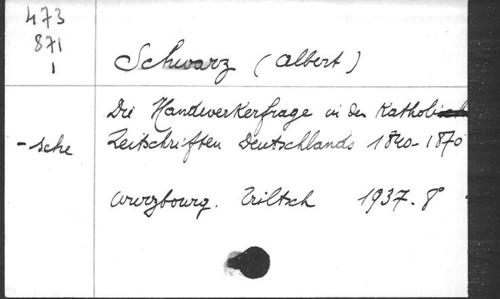 473
871
1
Schwarz (Albert)
Die Handwerkerfrage in den Katholi
-sche Zeitschriften Deutschlands 1840-1870
Wurzbourg. Triltsch 1937. 8°